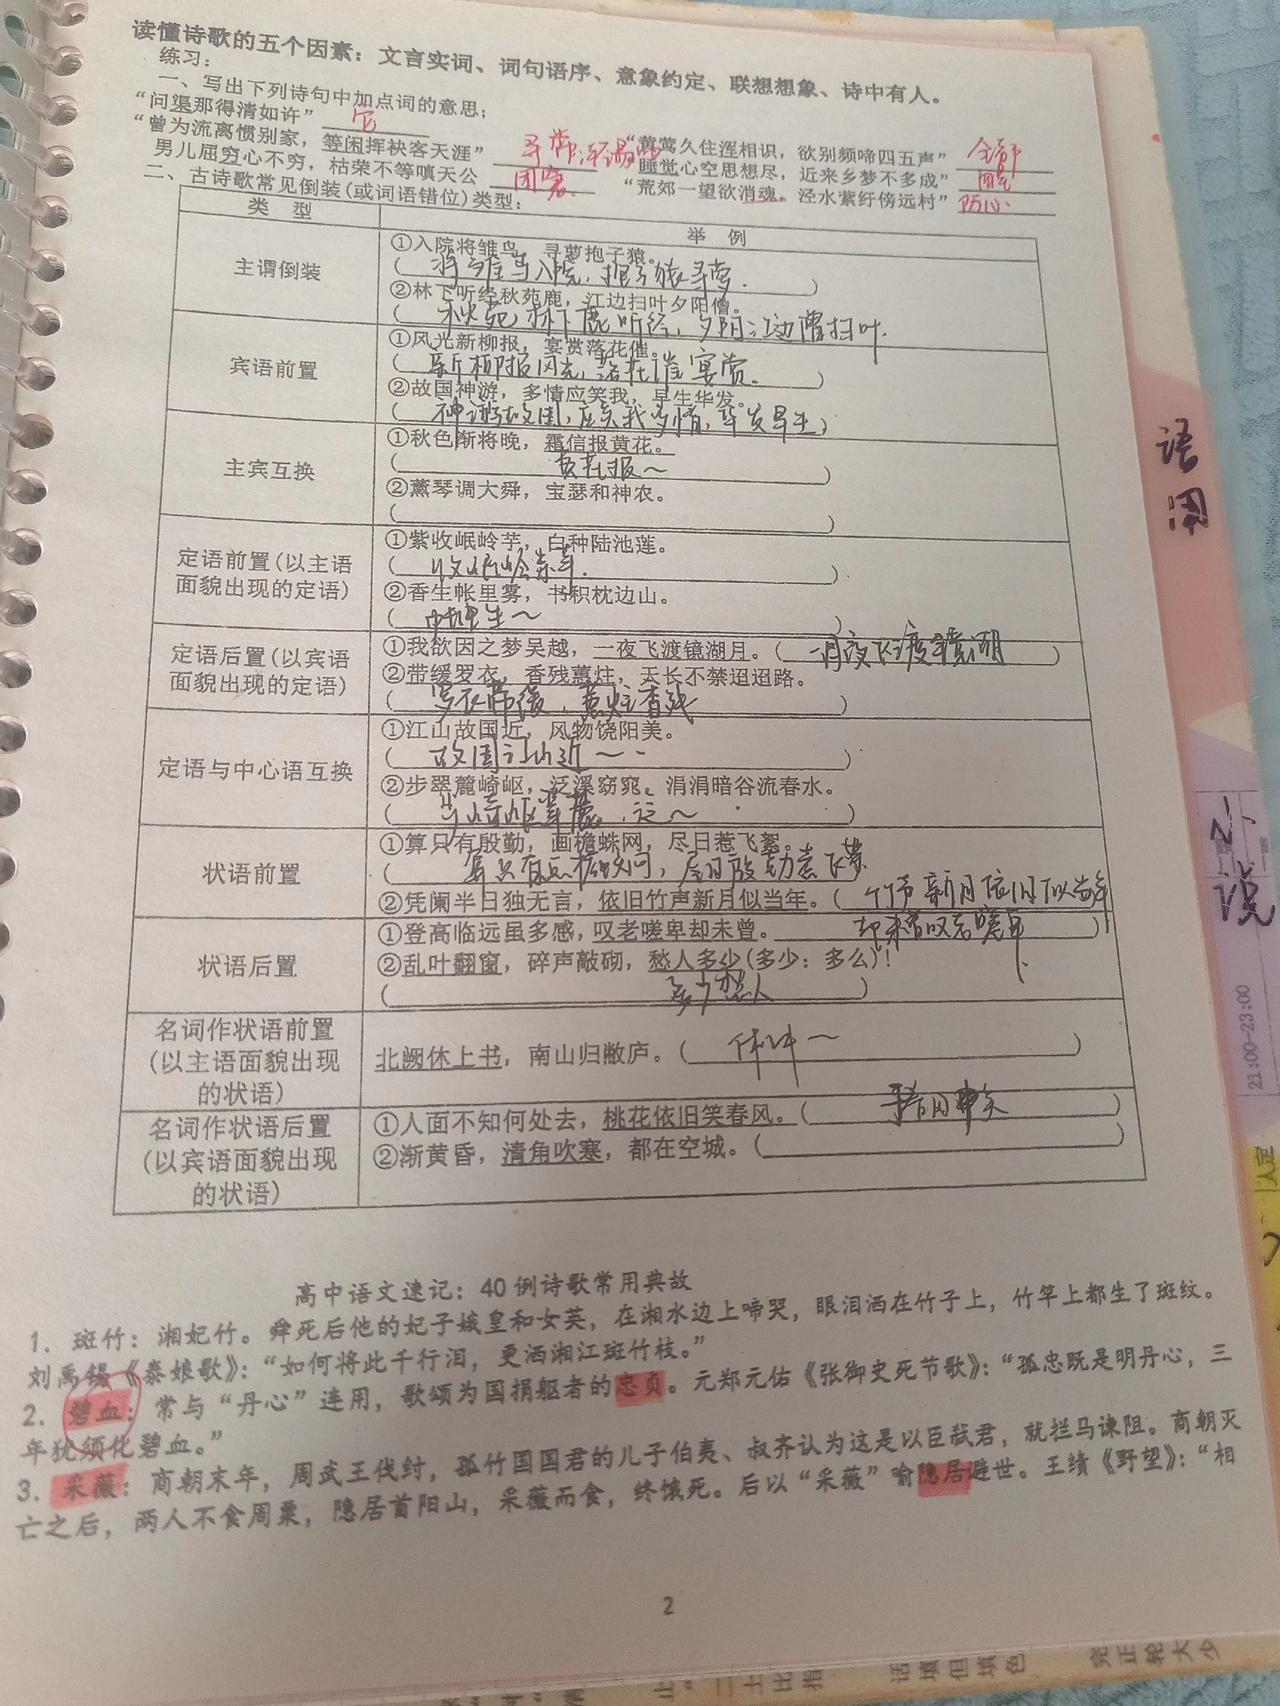 读懂诗歌的五个因素：文言实词、词句语序、意象约定、联想想象、诗中有人。
练习：
一、写出下列诗句中加点词的意思；
“问渠那得清如许” 它
“曾为流离惯别家，等闲挥袂客天涯” 寻常
“黄莺久住浑相识，欲别频啼四五声” 全都
男儿屈穷心不穷，枯荣不等嗔天公 困窘
“睡觉心空思想尽，近来乡梦不多成” 醒
“荒郊一望欲消魂，泾水萦纡傍远村” 伤心
二、古诗歌常见倒装(或词语错位)类型：
类 型 举 例
主谓倒装
①入院将雏鸟，寻萝抱子猿。
( 将雏鸟入院，抱子猿寻萝. )
②林下听经秋苑鹿，江边扫叶夕阳僧。
( 秋苑林下鹿听经，夕阳江边僧扫叶.
宾语前置
①风光新柳报，宴赏落花催。
( 新柳报风光，落花催宴赏. )
②故国神游，多情应笑我，早生华发。
( 神游故国，应笑我多情，华发早生)
主宾互换
①秋色渐将晚，霜信报黄花。
( 黄花报～ )
②薰琴调大舜，宝瑟和神农。
( )
定语前置(以主语面貌出现的定语)
①紫收岷岭芋，白种陆池莲。
( 收岷岭紫芋. )
②香生帐里雾，书积枕边山。
( 帐里生～ )
定语后置(以宾语面貌出现的定语)
①我欲因之梦吴越，一夜飞渡镜湖月。( 一月夜飞渡镜湖
②带缓罗衣，香残蕙炷，天长不禁迢迢路。
( 罗衣带缓，蕙炷香残 )
定语与中心语互换
①江山故国近，风物饶阳美。
( 故国江山近～ )
②步翠麓崎岖，泛溪窈窕，涓涓暗谷流春水。
( 步崎岖翠麓，泛～ )
状语前置
①算只有殷勤，画檐蛛网，尽日惹飞絮。
( 算只有画檐蛛网，尽日殷勤惹飞絮
②凭阑半日独无言，依旧竹声新月似当年。( 竹声新月依旧似当年
状语后置
①登高临远虽多感，叹老嗟卑却未曾。 却未曾叹老嗟卑 )
②乱叶翻窗，碎声敲砌，愁人多少(多少：多么)！
( 多少愁人 )
名词作状语前置(以主语面貌出现的状语)
北阙休上书，南山归敝庐。( 休～ )
名词作状语后置(以宾语面貌出现的状语)
①人面不知何处去，桃花依旧笑春风。( )
②渐黄昏，清角吹寒，都在空城。( )
高中语文速记：40 例诗歌常用典故
1. 斑竹：湘妃竹。舜死后他的妃子娥皇和女英，在湘水边上啼哭，眼泪洒在竹子上，竹竿上都生了斑纹。
刘禹锡《泰娘歌》：“如何将此千行泪，更洒湘江斑竹枝。”
2. 碧血：常与“丹心”连用，歌颂为国捐躯者的忠贞。元郑元佑《张御史死节歌》：“孤忠既是明丹心，三
年犹须化碧血。”
3. 采薇：商朝末年，周武王伐纣，孤竹国国君的儿子伯夷、叔齐认为这是以臣弑君，就拦马谏阻。商朝灭
亡之后，两人不食周粟，隐居首阳山，采薇而食，终饿死。后以“采薇”喻隐居避世。王绩《野望》：“相
2
语
用
小
说
21:00-23:00
人定